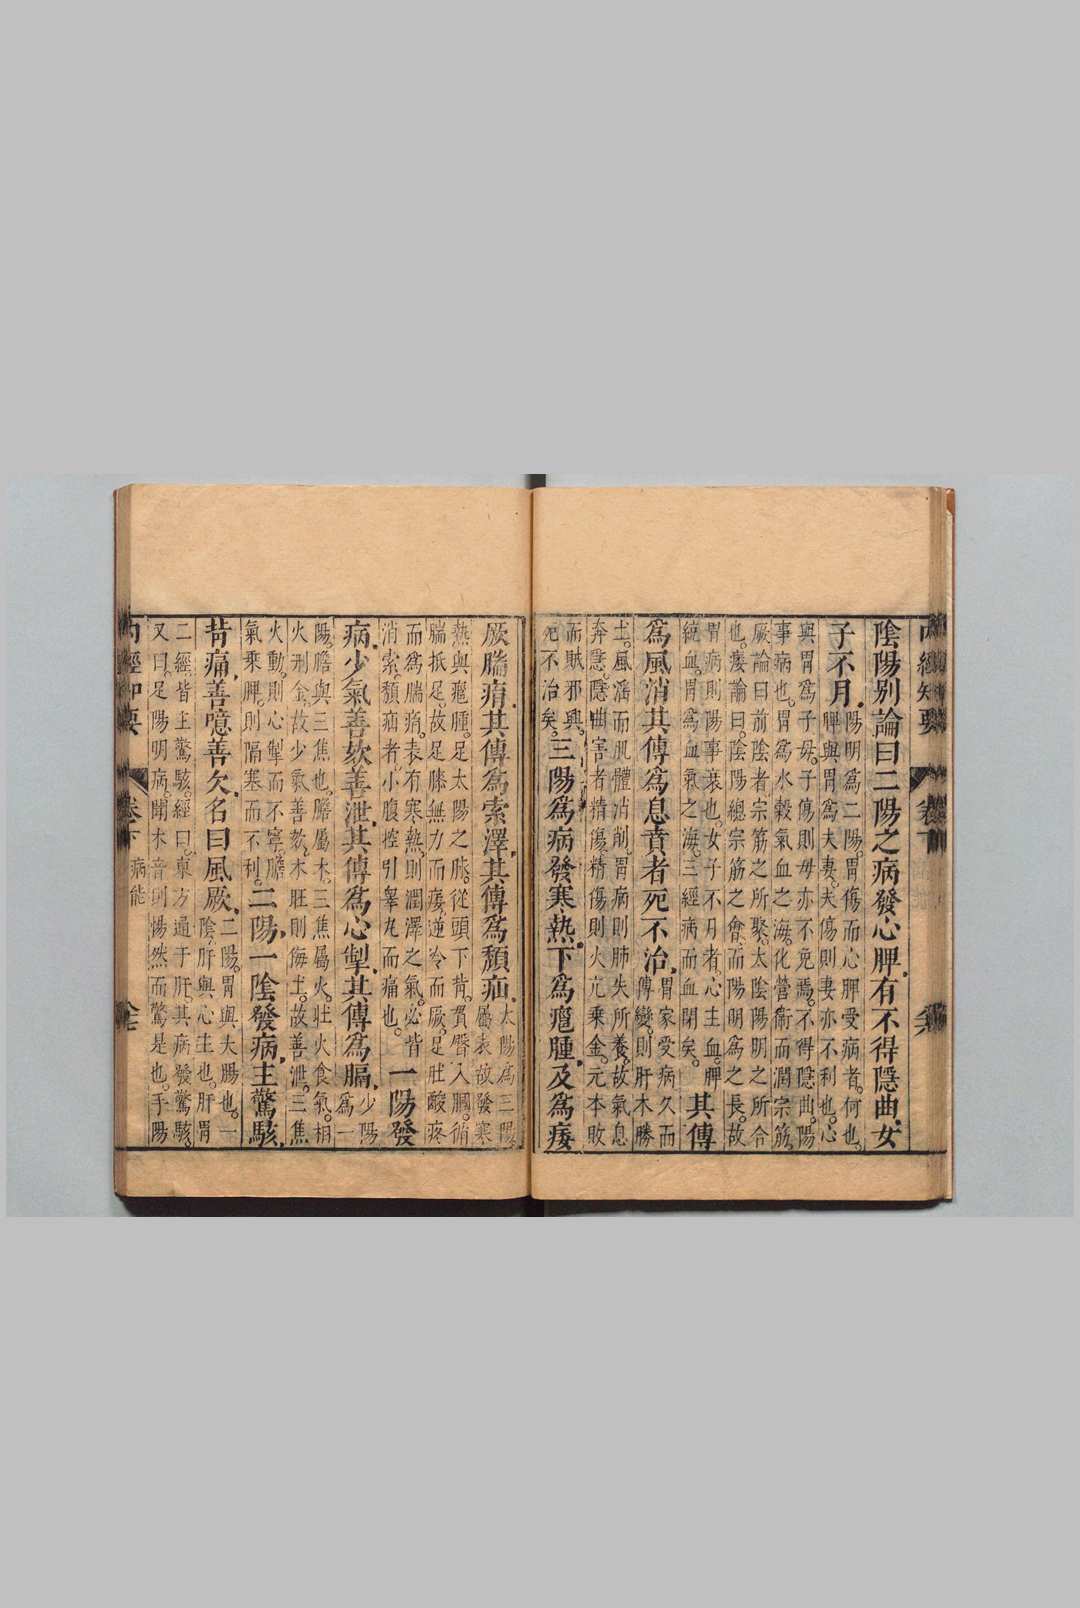 內經知要 卷下
陰陽別論曰二陽之病發心脾有不得隱曲女
子不月。陽明爲二陽。胃傷而心脾受病者。何也。
脾與胃爲夫妻。夫傷則妻亦不利也。心
與胃爲子母。子傷則母亦不免焉。不得隱曲。陽
事病也。胃爲水穀氣血之海。化營衞而潤宗筋。
厥論曰。前陰者宗筋之所聚。太陰陽明之所合
也。痿論曰。陰陽總宗筋之會。而陽明爲之長。故
胃病則陽事衰也。女子不月者。心主血。脾
統血。胃爲血氣之海。三經病而血閉矣。其傳
爲風消其傳爲息賁者死不治。胃家受病久而
傳變。則肝木勝
土。風淫而肌體消削。胃病則肺失所養。故氣息
奔急。隱曲害者精傷。精傷則火亢乘金。元本敗
而賊邪興。
死不治矣。三陽爲病發寒熱。下爲癰腫。及爲痿
厥腨㾓。其傳爲索澤。其傳爲㿗疝。太陽爲三陽。
屬表。故發寒
熱與癰腫。足太陽之脉。從頭下背。貫臀入膕。循
腨抵足。故足膝無力而痿。逆冷而厥。足肚酸疼
而爲腨㾓。表有寒熱。則潤澤之氣。必皆
消索。㿗疝者。小腹控引睾丸而痛也。一陽發
病。少氣善欬善泄。其傳爲心掣。其傳爲膈。少陽
爲一
陽。膽與三焦也。膽屬木。三焦屬火。壯火食氣。相
火刑金。故少氣善欬。木旺則侮土。故善泄。三焦
火動。則心掣而不寧。膽
氣乘脾。則隔塞而不利。二陽一陰發病。主驚駭
背痛。善噫善欠。名曰風厥。二陽。胃與大腸也。一
陰。肝與心主也。肝胃
二經。皆主驚駭。經曰。東方通于肝。其病發驚駭。
又曰。足陽明病。聞木音則惕然而驚是也。手陽
內經知要 卷下 病能